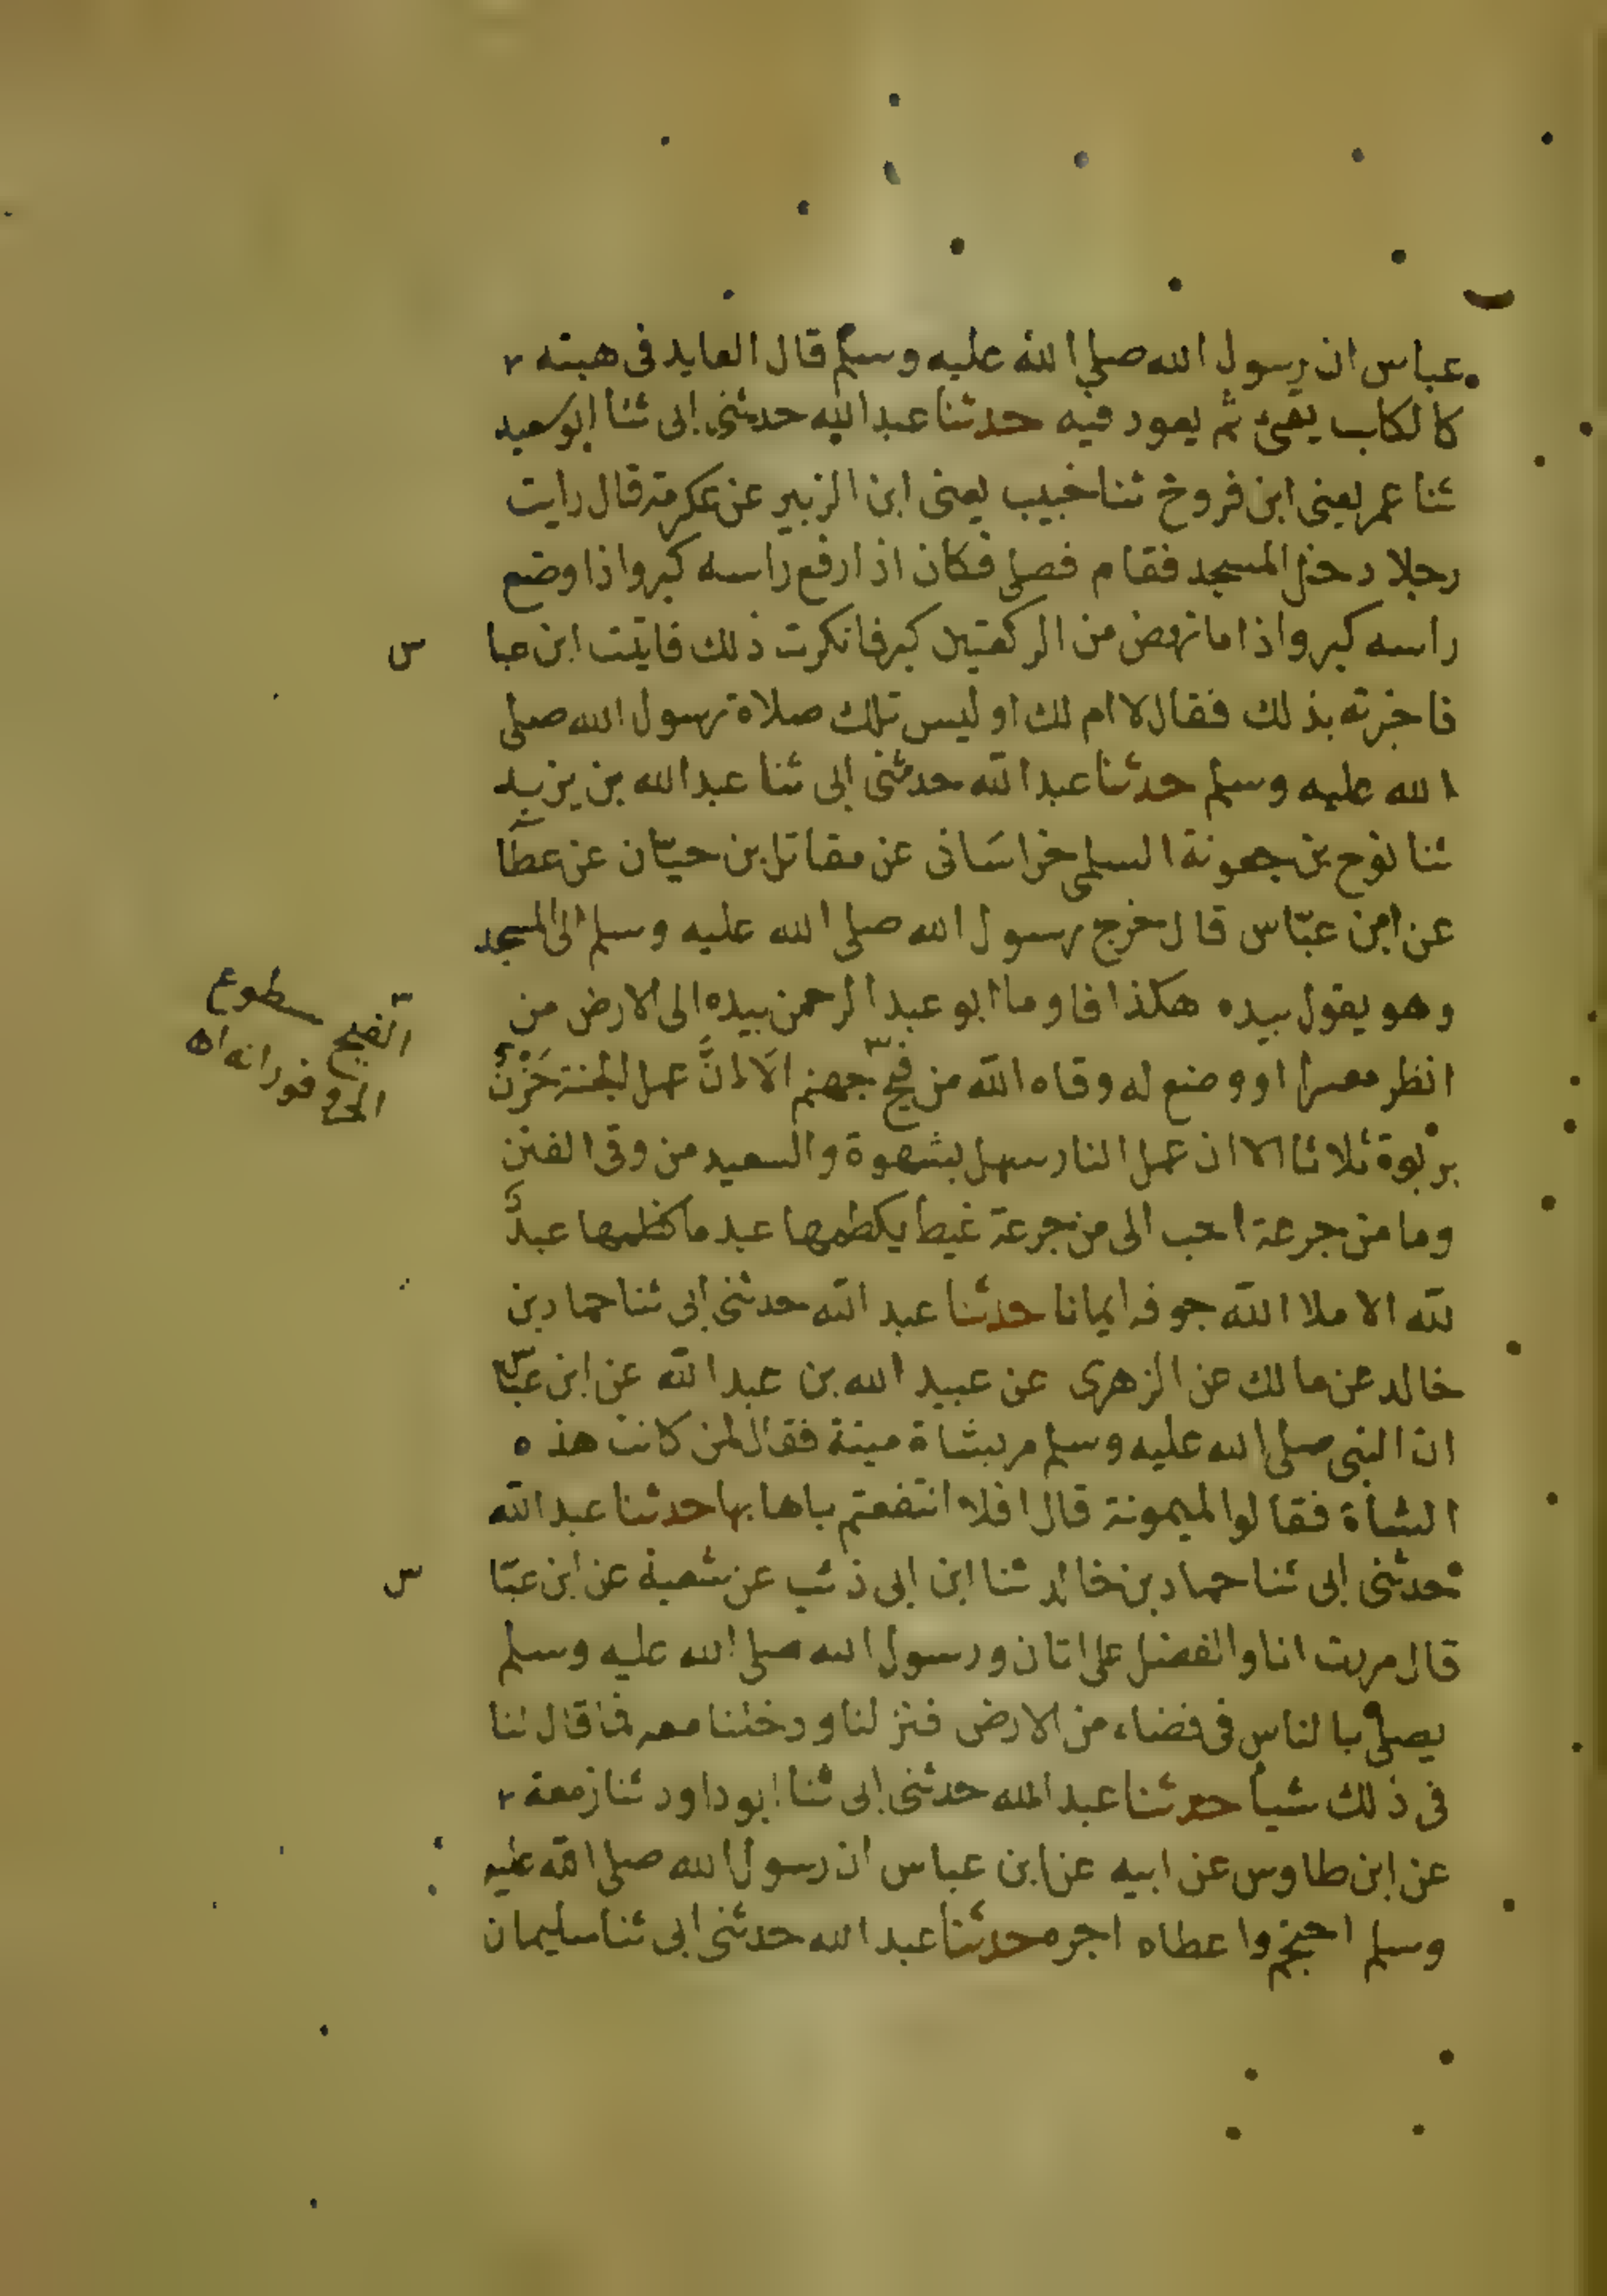 عباس ان رسول الله صلي الله عليه وسلم قال العايد فى هبته
كالكلب يقئ ثم يعود فيه حدثنا عبد الله حدثنى ابى ثنا ابو سعيد
ثنا عمر يعنى ابن فروخ ثنا خبيب يعنى ابن الزبير عن عكرمة قال رايت
رجلا دخل المسجد فقام فصلى فكان اذا رفع راسه كبر واذا وضع
راسه كبر واذا ما نهض من الركعتين كبر فانكرت ذلك فاتيت ابن عباس
فاخبرته بذلك فقال لا ام لك او ليس تلك صلاة رسول الله صلى
الله عليه وسلم حدثنا عبد الله حدثنى ابى ثنا عبد الله بن يزيد
ثنا نوح بن جعونة السلمى خراسَانى عن مقاتل بن حيّان عن عطآ
عن ابن عبّاس قال خرج رسول الله صلى الله عليه وسلم الى المسجد
وهو يقول بيده هكذا فاوما ابو عبد الرحمن بيده الى الارض من
انظر معسرا او وضع له وقاه الله من فيح جهنم الَا انَّ عمل الجنة حَزْنٌ
بربوة ثلاثا الا ان عمل النار سهل بشهوة والسعيد من وقى الفتن
وما من جرعة احب الى من جرعة غيط يكظمها عبد ما كظمها عبدٌ
لله الا ملا الله جوفه ايمانا حدثنا عبد الله حدثنى ابى ثنا حماد بن
خالد عن مالك عن الزهرى عن عبيد الله بن عبد الله عن ابن عبّاس
ان النبى صلى الله عليه وسلم مر بشاة ميتة فقال لمن كانت هذه
الشاة فقالوا لميمونة قال افلا انتفعتم باهابها حدثنا عبد الله
حدثنى ابى ثنا حماد بن خالد ثنا ابن ابى ذئب عن شعبة عن ابن عبّاس
قال مررت انا والفضل على اتان ورسول الله صلى الله عليه وسلم
يصلى بالناس فى فضاء من الارض فنزلنا ودخلنا معه فما قال لنا
فى ذلك شيأ حدثنا عبد الله حدثنى ابى ثنا ابو داود ثنا زمعة
عن ابن طاوس عن ابيه عن ابن عباس ان رسول الله صلى الله عليه
وسلم احتجم واعطاه اجره حدثنا عبد الله حدثنى ابى ثنا سليمان
الفيح سطوع
الحر وفورانه اه